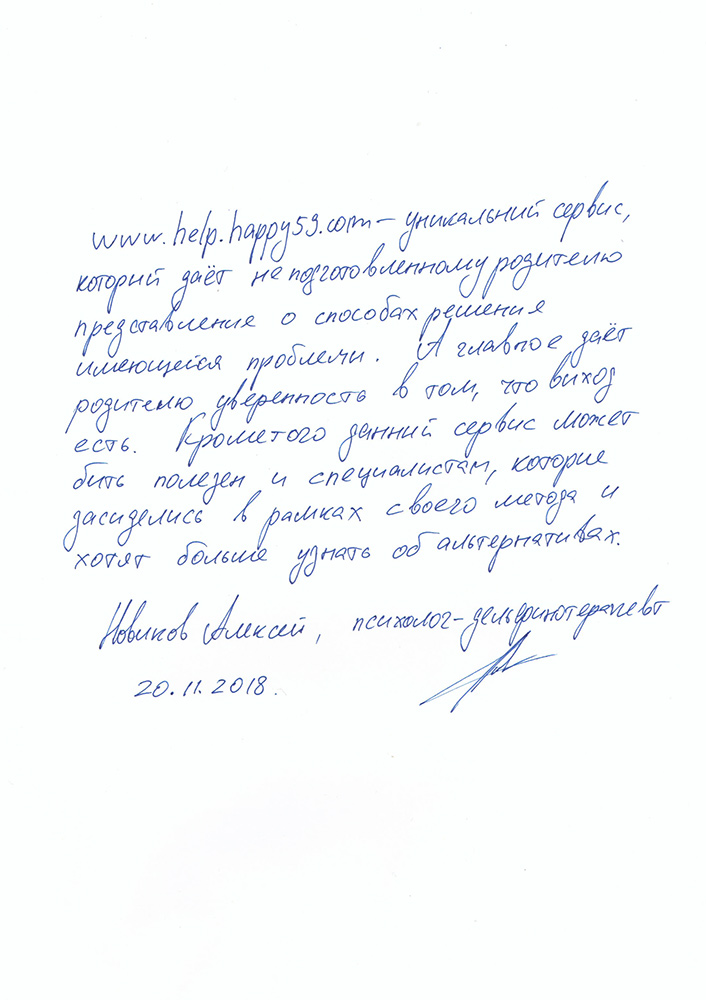 www.help.happy59.com – уникальний сервис,
который даёт неподготовленному родителю
представление о способах решения
имеющейся проблеми. А главное даёт
родителю уверенность в том, что виход
есть. Крометого данний сервис может
бить полезен и специалистам, которие
засиделись в рамках своего метода и
хотят больше узнать об альтернативах.
Новиков Алексей, психолог-дельфинотерапевт
20.11.2018.